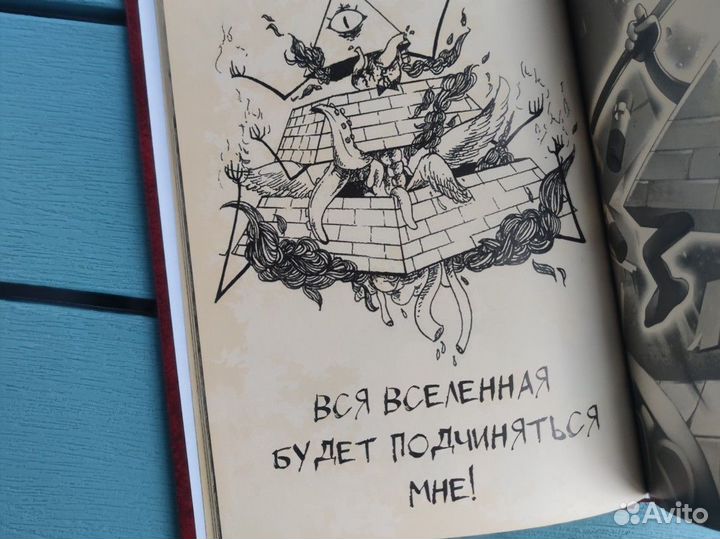 ВСЯ ВСЕЛЕННАЯ
БУДЕТ ПОДЧИНЯТЬСЯ
МНЕ!
Avito